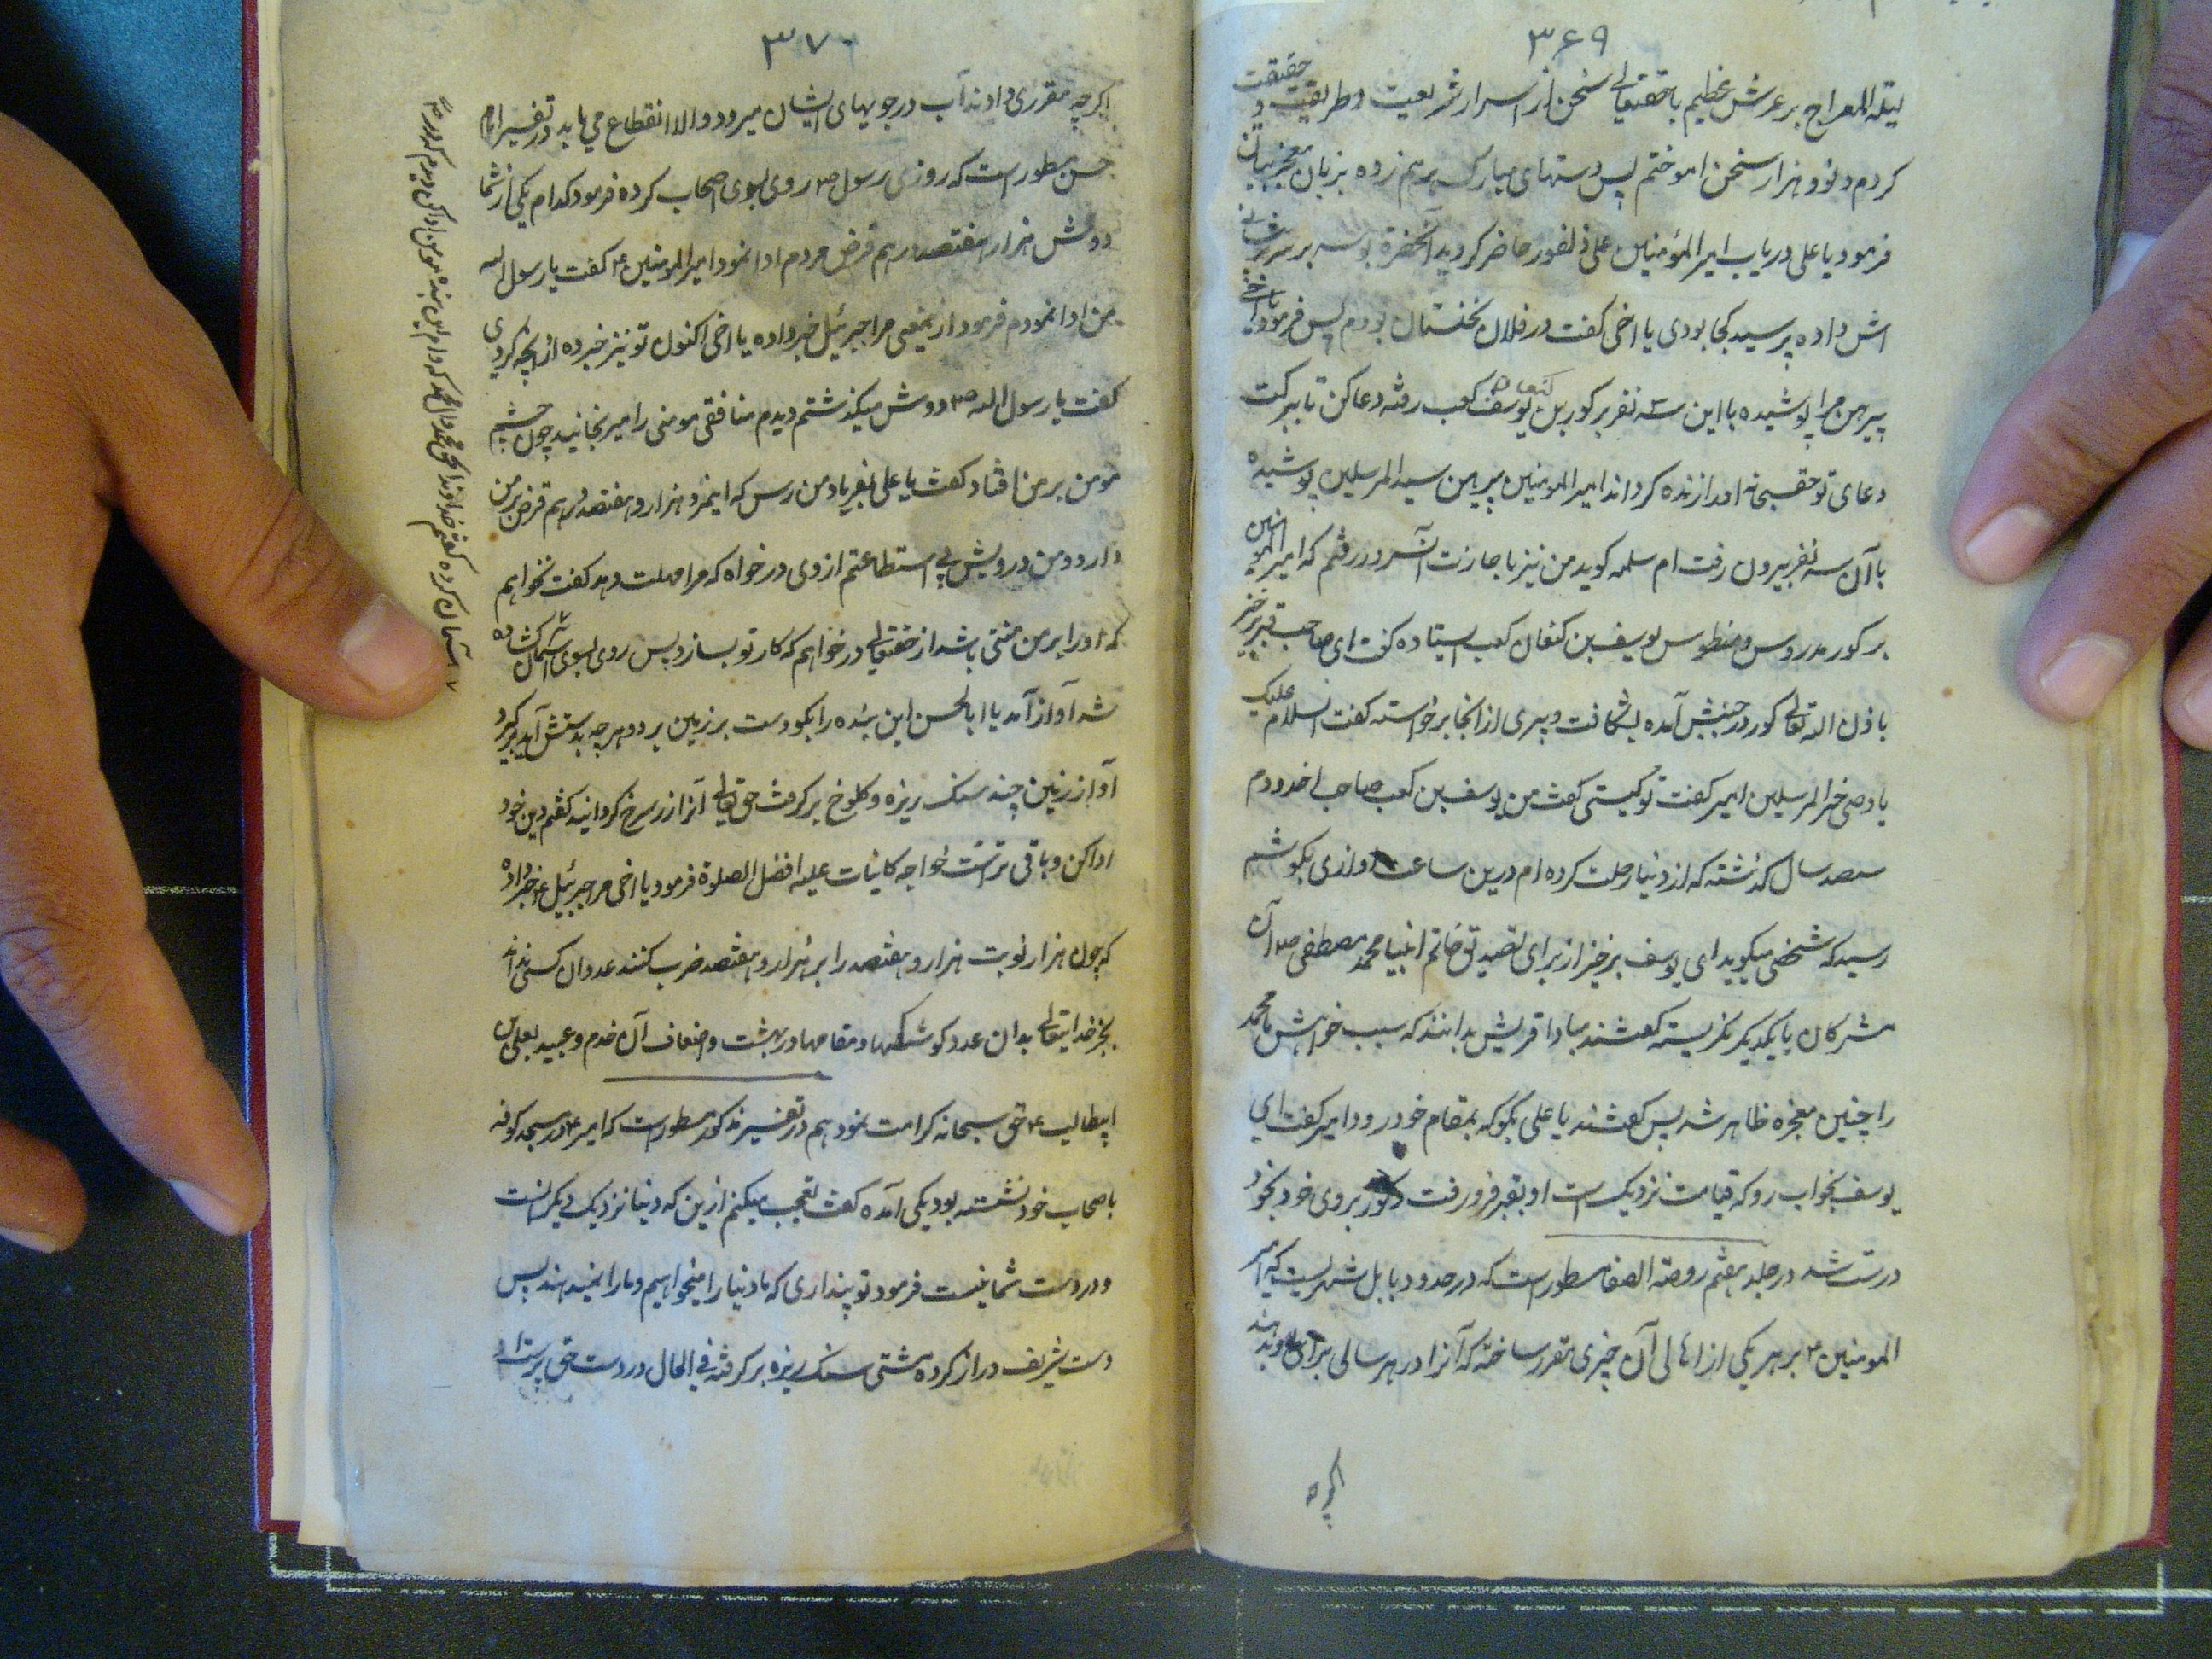 ۳۶۹
لیلة المعراج بر عرش عظیم با حقتعالی سخن از اسرار شریعت و طریقت و حقیقت
کردم و نود هزار سخن اموختم پس دستهای مبارک برهم زده بزبان معجز بیان
فرمود یا علی دریاب امیر المؤمنین علی فی الفور حاضر کردید آنحضرة بوسه بر سر
اش داده پرسید کجا بودی یا اخی کفت در فلان نخلستان بودم پس فرمود یا اخی
پیرهن مرا پوشیده با این سه نفر بر کور یوسف بن کعب رفته دعا کن تا ببرکت
دعای تو حقسبحانه اورا زنده کرداند امیر المومنین پیرهن سید المرسلین پوشیده
با آن سه نفر بیرون رفت ام سلمه کوید من نیز باجازت آنسرور رفتم که امیر المومنین
بر کور مدروس و منطوس یوسف بن کنعان کعب ایستاده کفت ای صاحب قبر برخیز
باذن الله تعالی کور در جنبش آمده بشکافت و پیری از انجا برخواسته کفت السلام علیک
یا وصی خیر المرسلین امیر کفت تو کیستی کفت من یوسف بن کعب صاحب اخدودم
سیصد سال کذشته که از دنیا رحلت کرده ام درین ساعت اوازی بکوشم
رسید که شخصی میکوید ای یوسف برخیز از برای تصدیق خاتم انبیا محمد مصطفی ص آن
مشرکان با یکدیکر نکریسته کفتند مبادا قریش بدانند که سبب خواهش ما محمد
را چنین معجزه ظاهر شد پس کفتند یا علی بکو که بمقام خود رود امیر کفت ای
یوسف بخواب رو که قیامت نزدیک است او بقبر فرو رفت و کور بروی خود بخود
درست شد در جلد هفتم روضة الصفا مسطور است که در حدود بابل شهریست که امیر
المومنین ع بر هر یکی از اهالی آن چیزی مقرر ساخته که آنرا در هر سالی بدهند
اکرچه
۳۷۰
اکرچه مقرری دادند آب در جویهای ایشان میرود والا انقطاع می یابد در تفسیر امام
حسن مسطور است که روزی رسول ص روی بسوی اصحاب کرده فرمود کدام یکی از شما
دوش هزار و هفتصد درهم قرض مردم ادا نمود امیر المومنین ع کفت یا رسول الله
من ادا نمودم فرمود ازینمعنی مرا جبرئیل خبر داده یا اخی اکنون تو نیز خبر ده از انچه کردی
کفت یا رسول الله ص دوش میکذشتم دیدم منافقی مومنی را میرنجانید چون چشم
مومن بر من افتاد کفت یا علی بفریاد من رس که اینمرد هزار و هفتصد درهم قرض بر من
دارد و من درویش بی استطاعتم از وی درخواه که مرا مهلت دهد کفت نخواهم
که اورا بر من منتی باشد از حقتعالی درخواهم که کار تو بسازد پس روی بسوی آسمان کشاده
شد آواز آمد یا ابا الحسن این بنده را بکو دست بر زمین برد و هر چه بدستش آید برکیرد
آواز زمین چند سنک ریزه و کلوخ برکرفت حق تعالی آنرا زر سرخ کردانید کفتم دین خود
ادا کن و باقی تراست خواجه کاینات علیه افضل الصلوة فرمود یا اخی مرا جبرئیل ع خبر داده
که چون هزار نوبت هزار و هفتصد را بر هزار و هفتصد ضرب کنند عدد آن کسی نداند
بجز خدایتعالی بدان عدد کوشکها و مقامها در بهشت و اضعاف آن خدم و عبید بعلی بن
ابیطالب ع حق سبحانه کرامت نمود هم در تفسیر مذکور مسطور است که امیر ع در مسجد کوفه
باصحاب خود نشسته بود یکی آمده کفت تعجب میکنم ازین که دنیا نزدیک دیکرانست
و در دست شما نیست فرمود تو پنداری که ما دنیا را میخواهیم و ما را نمیدهند پس
دست شریف دراز کرده مشتی سنک ریزه برکرفته فی الحال در دست حق پرست
آسمان کرده کفتم خداوندا بحق محمد و آل محمد که وام این بنده مومن ادا کن دیدم که در